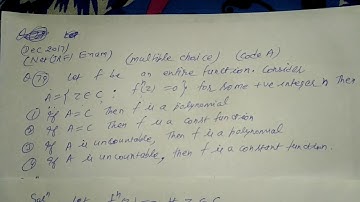 (Dec 2017)
(Net (JRF) Exam) (multiple choice) (Code A)
Q 79 Let f be an entire function. Consider
A = { z ∈ C ; fⁿ(z) = 0 } for some +ve integer n Then
① If A = C, Then f is a polynomial
② If A = C Then f is a const function
③ If A is uncountable, Then f is a polynomial
④ If A is uncountable, then f is a constant function.
Solⁿ Let fⁿ(z) = 0 ∀ z ∈ C